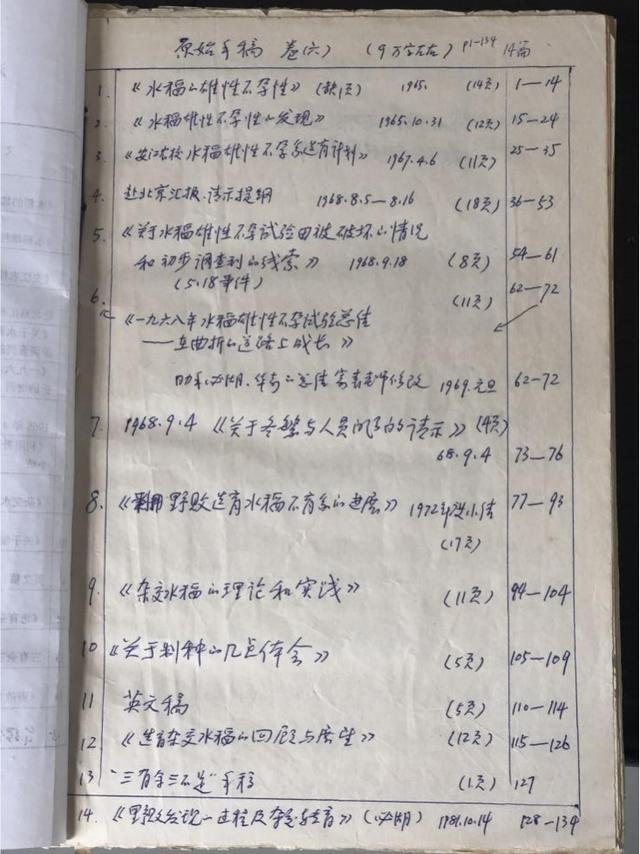 原始手稿 卷(六) (9万字左右) P1—134 14篇
1. 《水稻的雄性不孕性》(缺1页) 1965. (14页) 1—14
2. 《水稻雄性不孕性的发现》 1965.10.31 (12页) 15—24
3. 《安江农校水稻雄性不孕系选育计划》 1967.4.6 (11页) 25—35
4. 赴北京汇报、请示提纲 1968.8.5—8.16 (18页) 36—53
5. 《关于水稻雄性不孕试验田被破坏的情况
和初步调查到的线索》 1968.9.18 (8页) 54—61
(5.18事件)
6. (11页) 62—72
《一九六八年水稻雄性不孕试验总结
——在曲折的道路上成长》
助手 的总结 老师修改 1969.元旦 62—72
7. 1968.9.4 《关于冬繁与人员 的请示》(4页)
68.9.4 73—76
8. 《利用野败选育水稻不育系的进展》 1972年 小结 77—93
(17页)
9. 《杂交水稻的理论和实践》 (11页) 94—104
10 《关于制种的几点体会》 (5页) 105—109
11 英文稿 (5页) 110—114
12 《选育杂交水稻的回顾与展望》 (12页) 115—126
13 "三有余三不足"手稿 (1页) 127
14. 《野败发现 过程及 》 1981.10.14 128—134